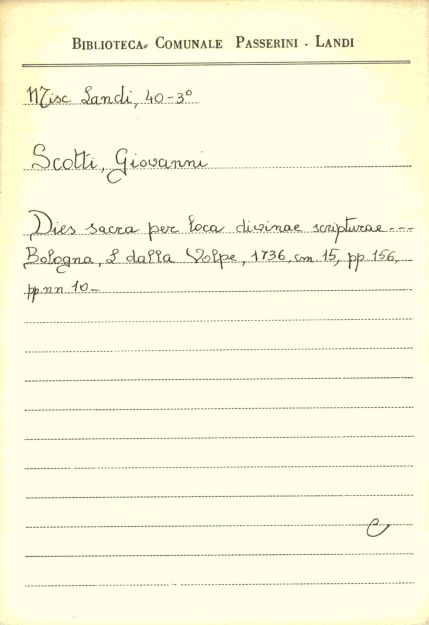 BIBLIOTECA COMUNALE PASSERINI - LANDI
Misc Landi, 40-3°
Scotti, Giovanni
Dies sacra per loca divinae scripturae ---
Bologna, L dalla Volpe, 1736, cm 15, pp 156,
pp.nn 10-
C